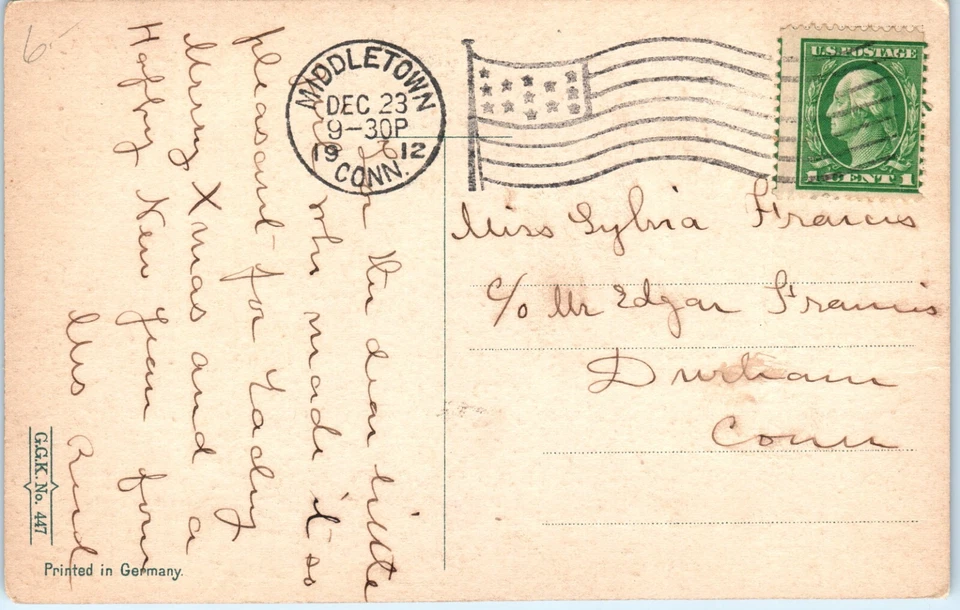 6
For the dear little
girl who made it so
pleasant for Lading
Merry Xmas and a
Happy New Year from
Mrs
MIDDLETOWN
DEC 23
9-30P
1912
CONN.
U.S. POSTAGE
1 CENT 1
Miss Sylvia Francis
c/o Mr Edgar Francis
Durham
Conn
G.G.K. No. 447
Printed in Germany.